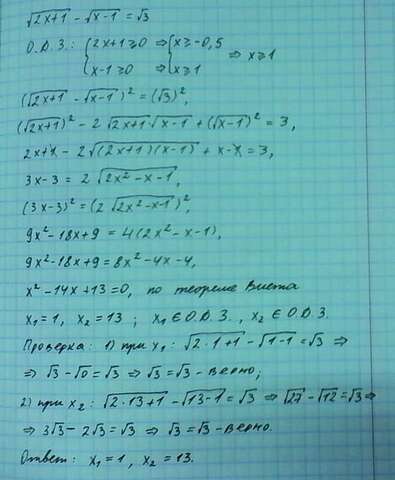 √(2x+1) - √(x-1) = √3
О.Д.З.: { 2x+1≥0 ⇒ { x≥-0,5 ⇒ x≥1
{ x-1≥0 ⇒ { x≥1
(√(2x+1) - √(x-1))² = (√3)²,
(√(2x+1))² - 2√(2x+1)·√(x-1) + (√(x-1))² = 3,
2x+1 - 2√((2x+1)(x-1)) + x-1 = 3,
3x-3 = 2√(2x²-x-1),
(3x-3)² = (2√(2x²-x-1))²,
9x²-18x+9 = 4(2x²-x-1),
9x²-18x+9 = 8x²-4x-4,
x²-14x+13=0, по теореме Виета
x₁=1, x₂=13; x₁∈О.Д.З., x₂∈О.Д.З.
Проверка: 1) при x₁: √(2·1+1) - √(1-1) = √3 ⇒
⇒ √3-√0=√3 ⇒ √3=√3 - верно;
2) при x₂: √(2·13+1) - √(13-1) = √3 ⇒ √27-√12=√3 ⇒
⇒ 3√3 - 2√3 = √3 ⇒ √3=√3 - верно.
Ответ: x₁=1, x₂=13.